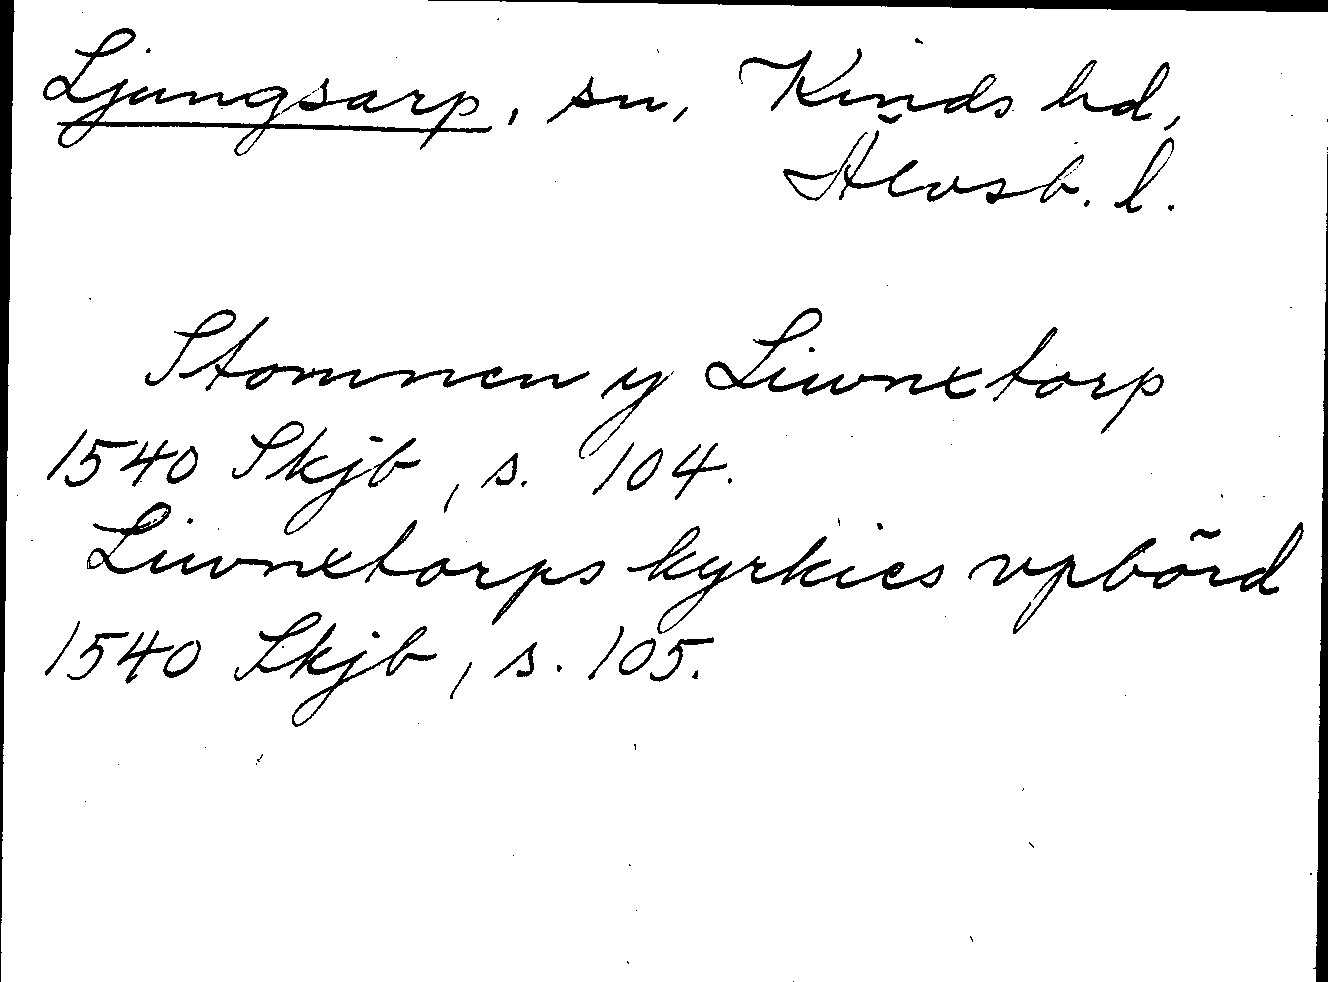 Ljungsarp, sn, Kinds hd,
Älvsb. l.
Stommen y Liwnxtorp
1540 Skjb, s. 104.
Liwnxtorps kyrkies vpbörd
1540 Skjb, s. 105.